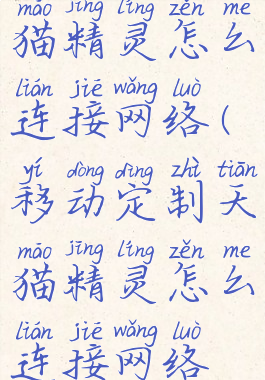 māo jīng líng zěn me
猫精灵怎么
lián jiē wǎng luò
连接网络(
yí dòng dìng zhì tiān
移动定制天
māo jīng líng zěn me
猫精灵怎么
lián jiē wǎng luò
连接网络